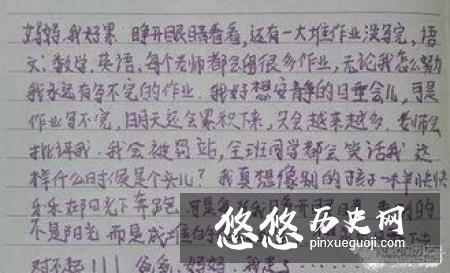 妈妈,我好累 睁开眼睛看看,还有一大堆作业没写完,语
文,数学,英语,每个老师都会留很多作业,无论我怎么努
我永远有写不完的作业.我好想安静的睡会儿,可是
作业写不完,明天还会累积下来,只会越来越多.老师会
批评我.我会被罚站,全班同学都会笑话我.这
样什么时候是个头儿?我真想像别的孩子一样快快
乐乐在阳光下奔跑 可是
不是阳光 而是成堆的
对不起!!! 爸爸,妈妈.我走了
悠悠历史网
pinxueguoji.com